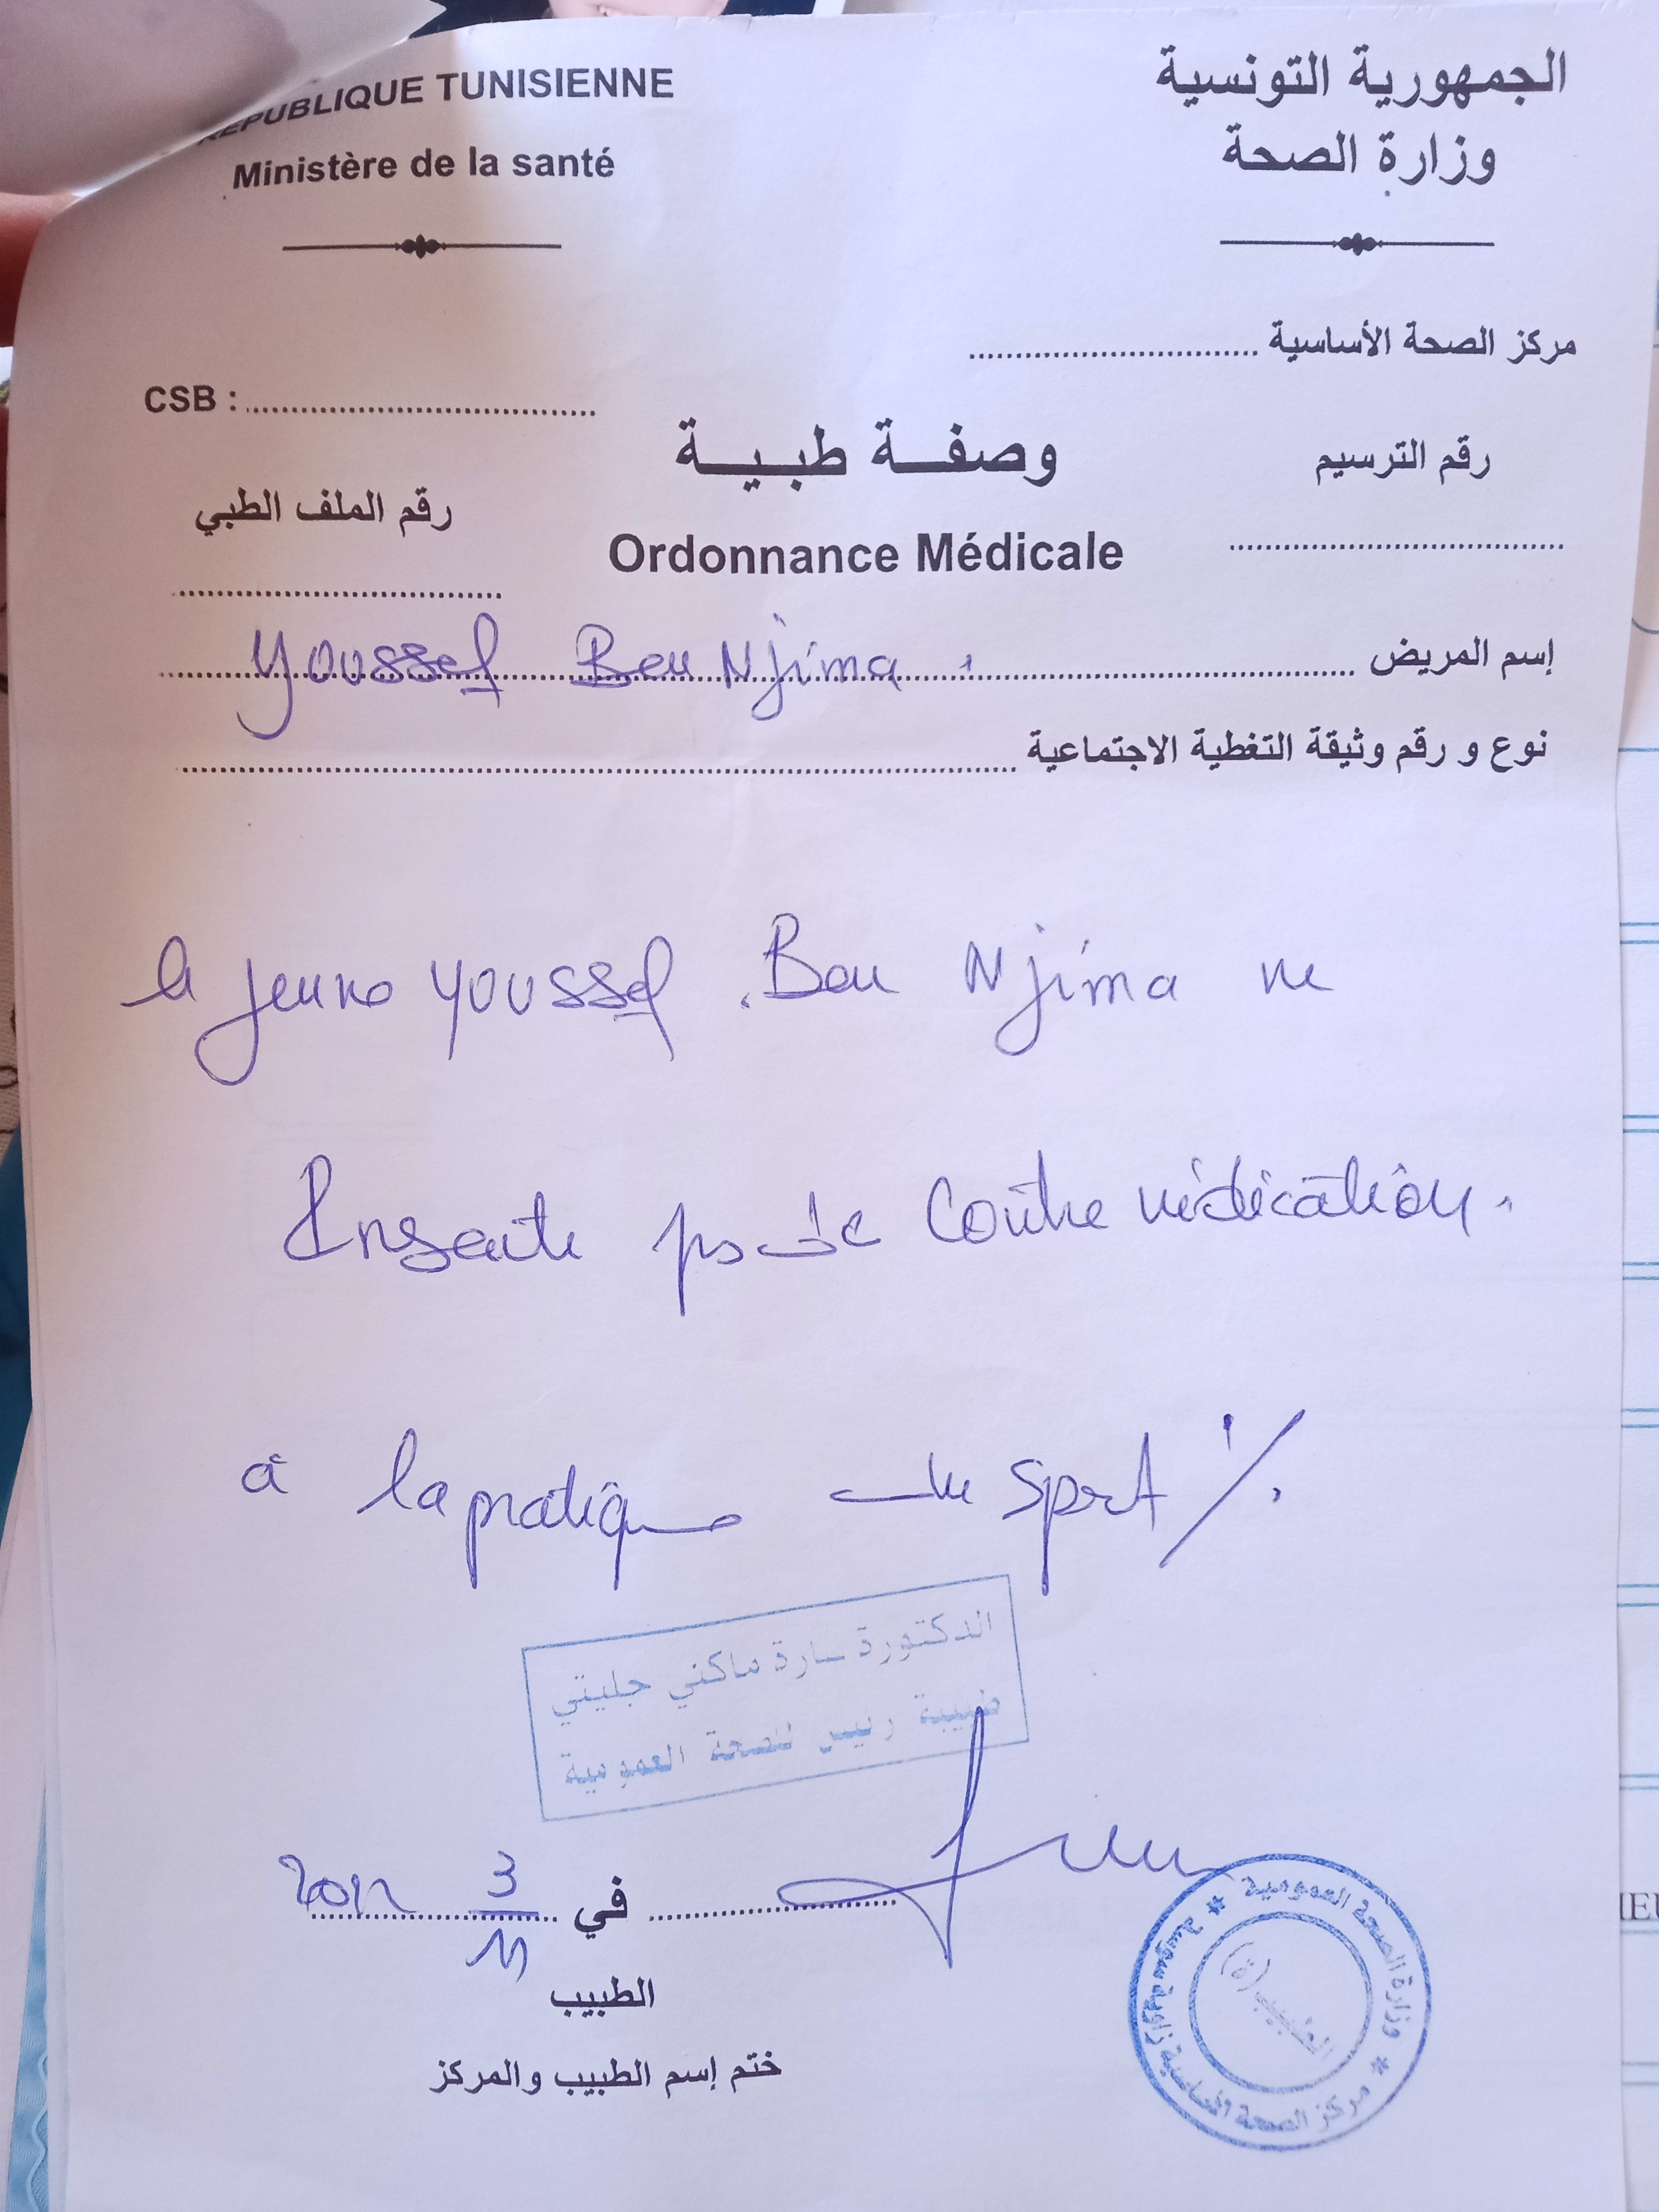 REPUBLIQUE TUNISIENNE
Ministère de la santé
الجمهورية التونسية
وزارة الصحة
مركز الصحة الأساسية
CSB :
وصفة طبية
رقم الترسيم
رقم الملف الطبي
Ordonnance Médicale
Youssef Ben Njima إسم المريض
نوع و رقم وثيقة التغطية الاجتماعية
le jeune Youssef Ben Njima ne
présente pas de contre indication
à la pratique du sport
الدكتورة سارة ماكني جليتي
طبيبة رئيس للصحة العمومية
في 3/11
الطبيب
ختم إسم الطبيب والمركز
وزارة الصحة العمومية * مركز الصحة الأساسية زاوية سوسة *
الطبيب(ة)